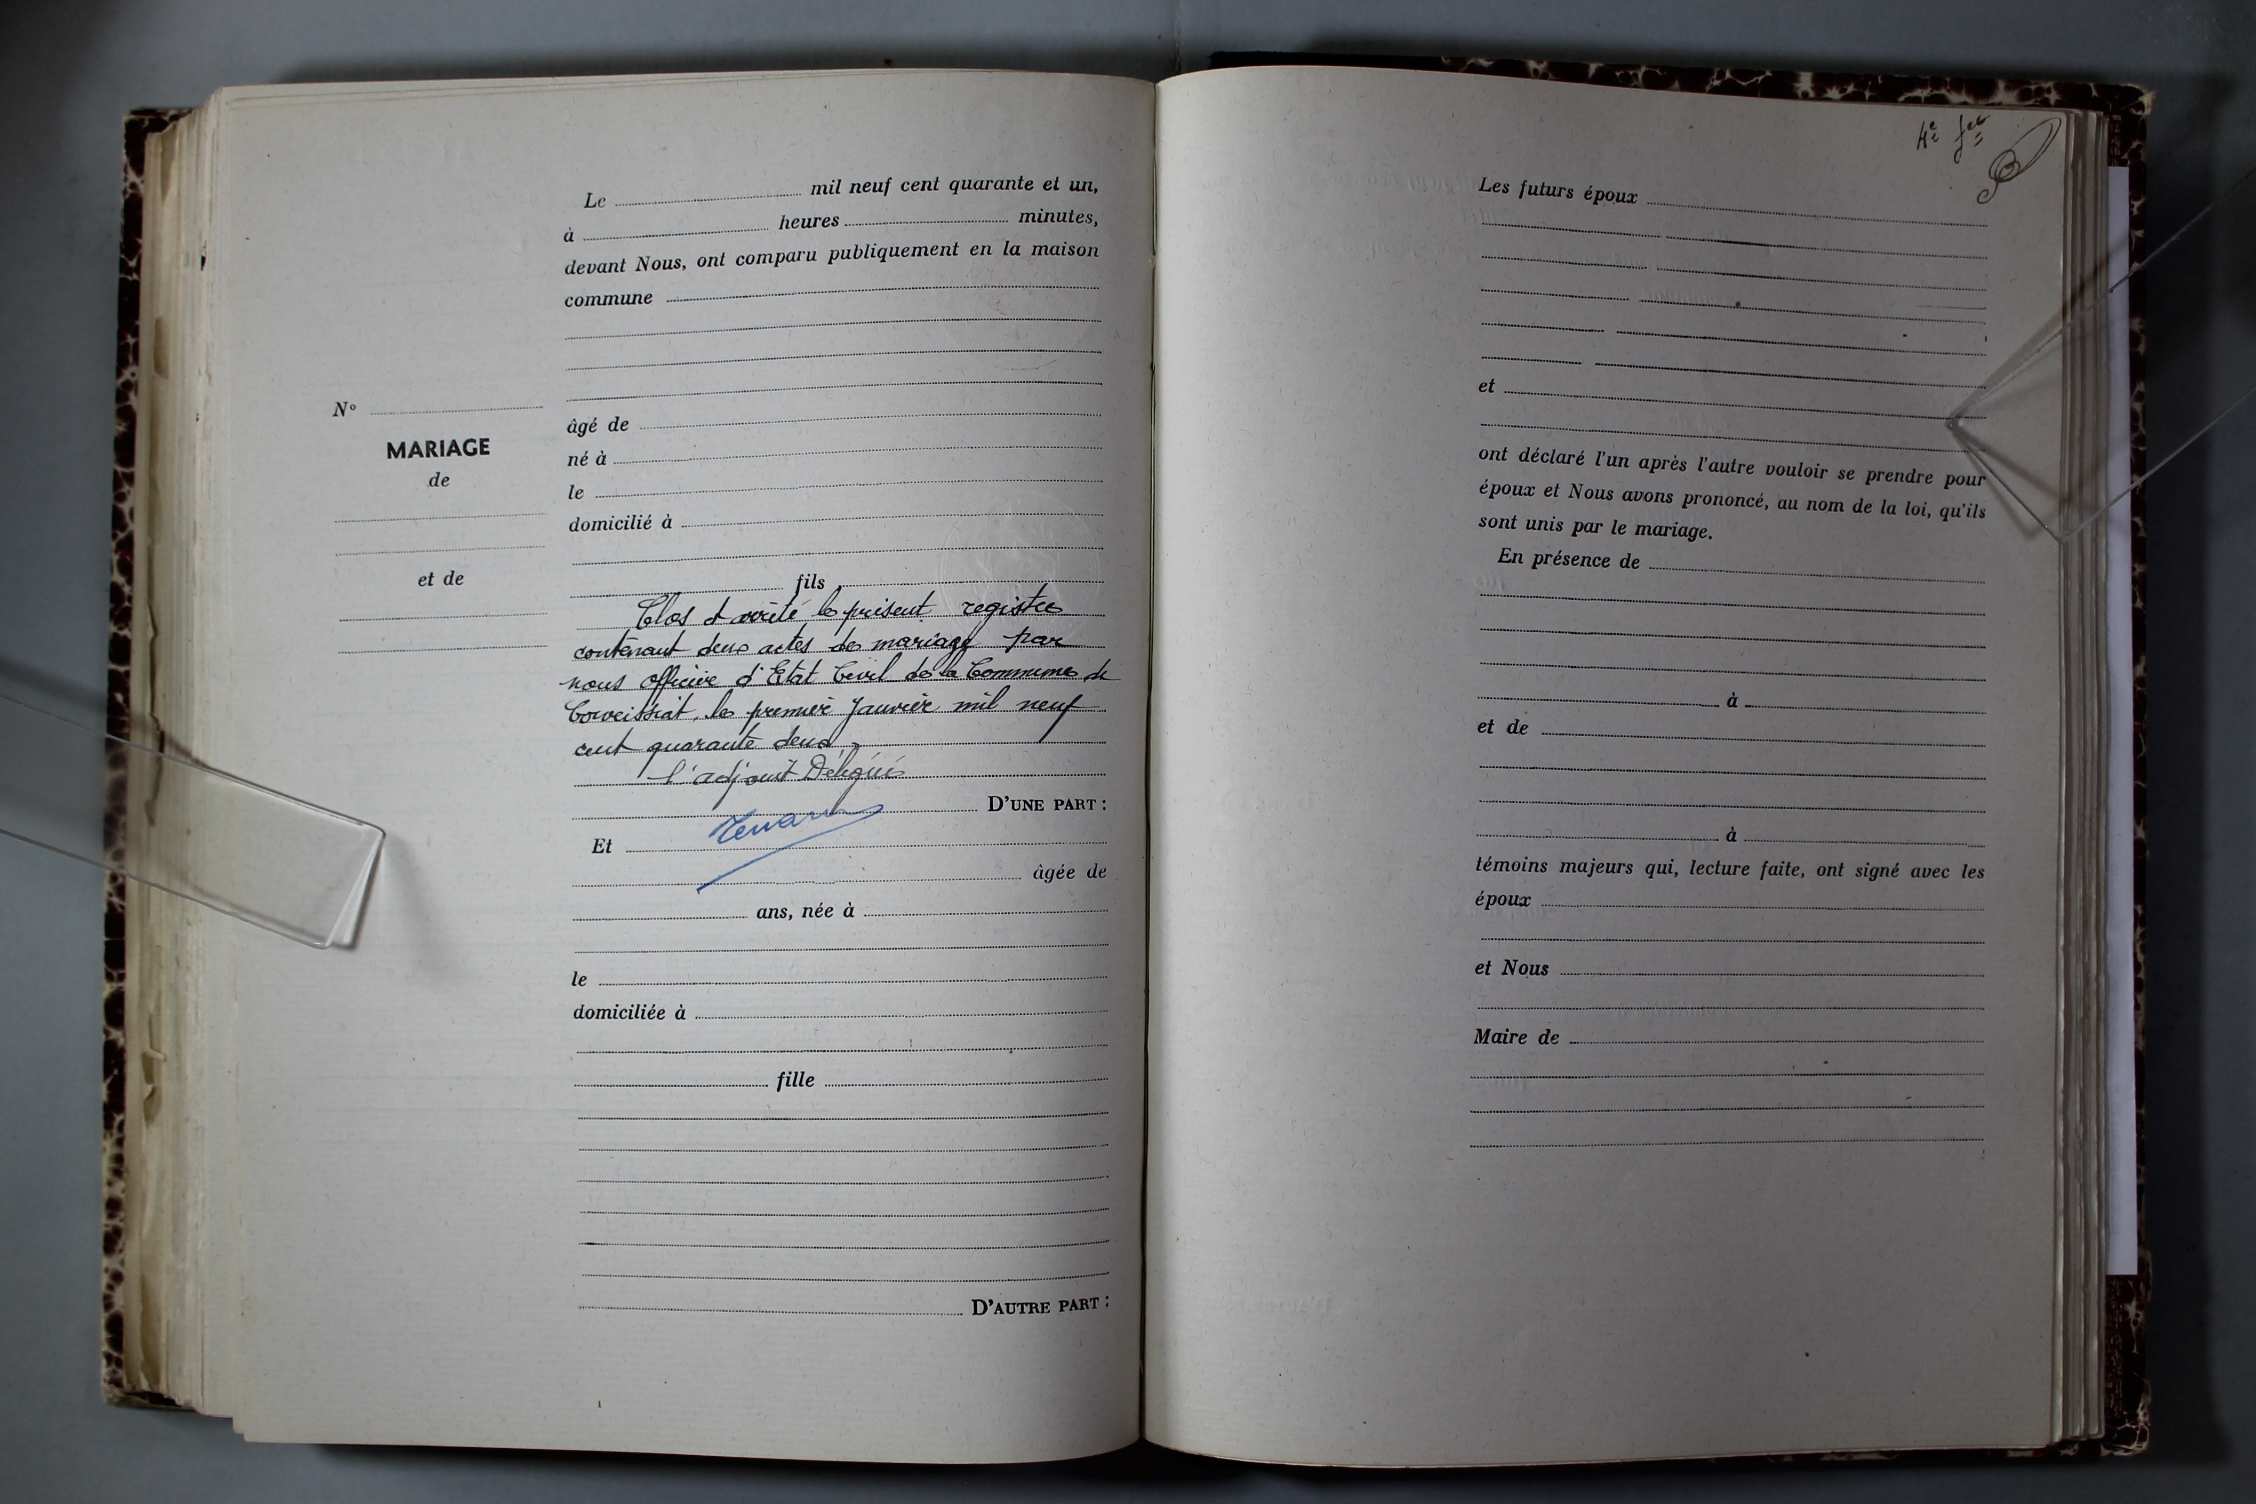 Le mil neuf cent quarante et un,
à heures minutes,
devant Nous, ont comparu publiquement en la maison
commune
âgé de
né à
le
domicilié à
fils
Clos et arrêté le présent registre
contenant deux actes de mariage par
nous officier d'Etat Civil de la Commune de
Corveissiat, le premier Janvier mil neuf
cent quarante deux
L'adjoint Délégué
D'UNE PART :
Et
âgée de
ans, née à
le
domiciliée à
fille
D'AUTRE PART :
N°
MARIAGE
de
et de
4e
Les futurs époux
et
ont déclaré l'un après l'autre vouloir se prendre pour
époux et Nous avons prononcé, au nom de la loi, qu'ils
sont unis par le mariage.
En présence de
à
et de
à
témoins majeurs qui, lecture faite, ont signé avec les
époux
et Nous
Maire de